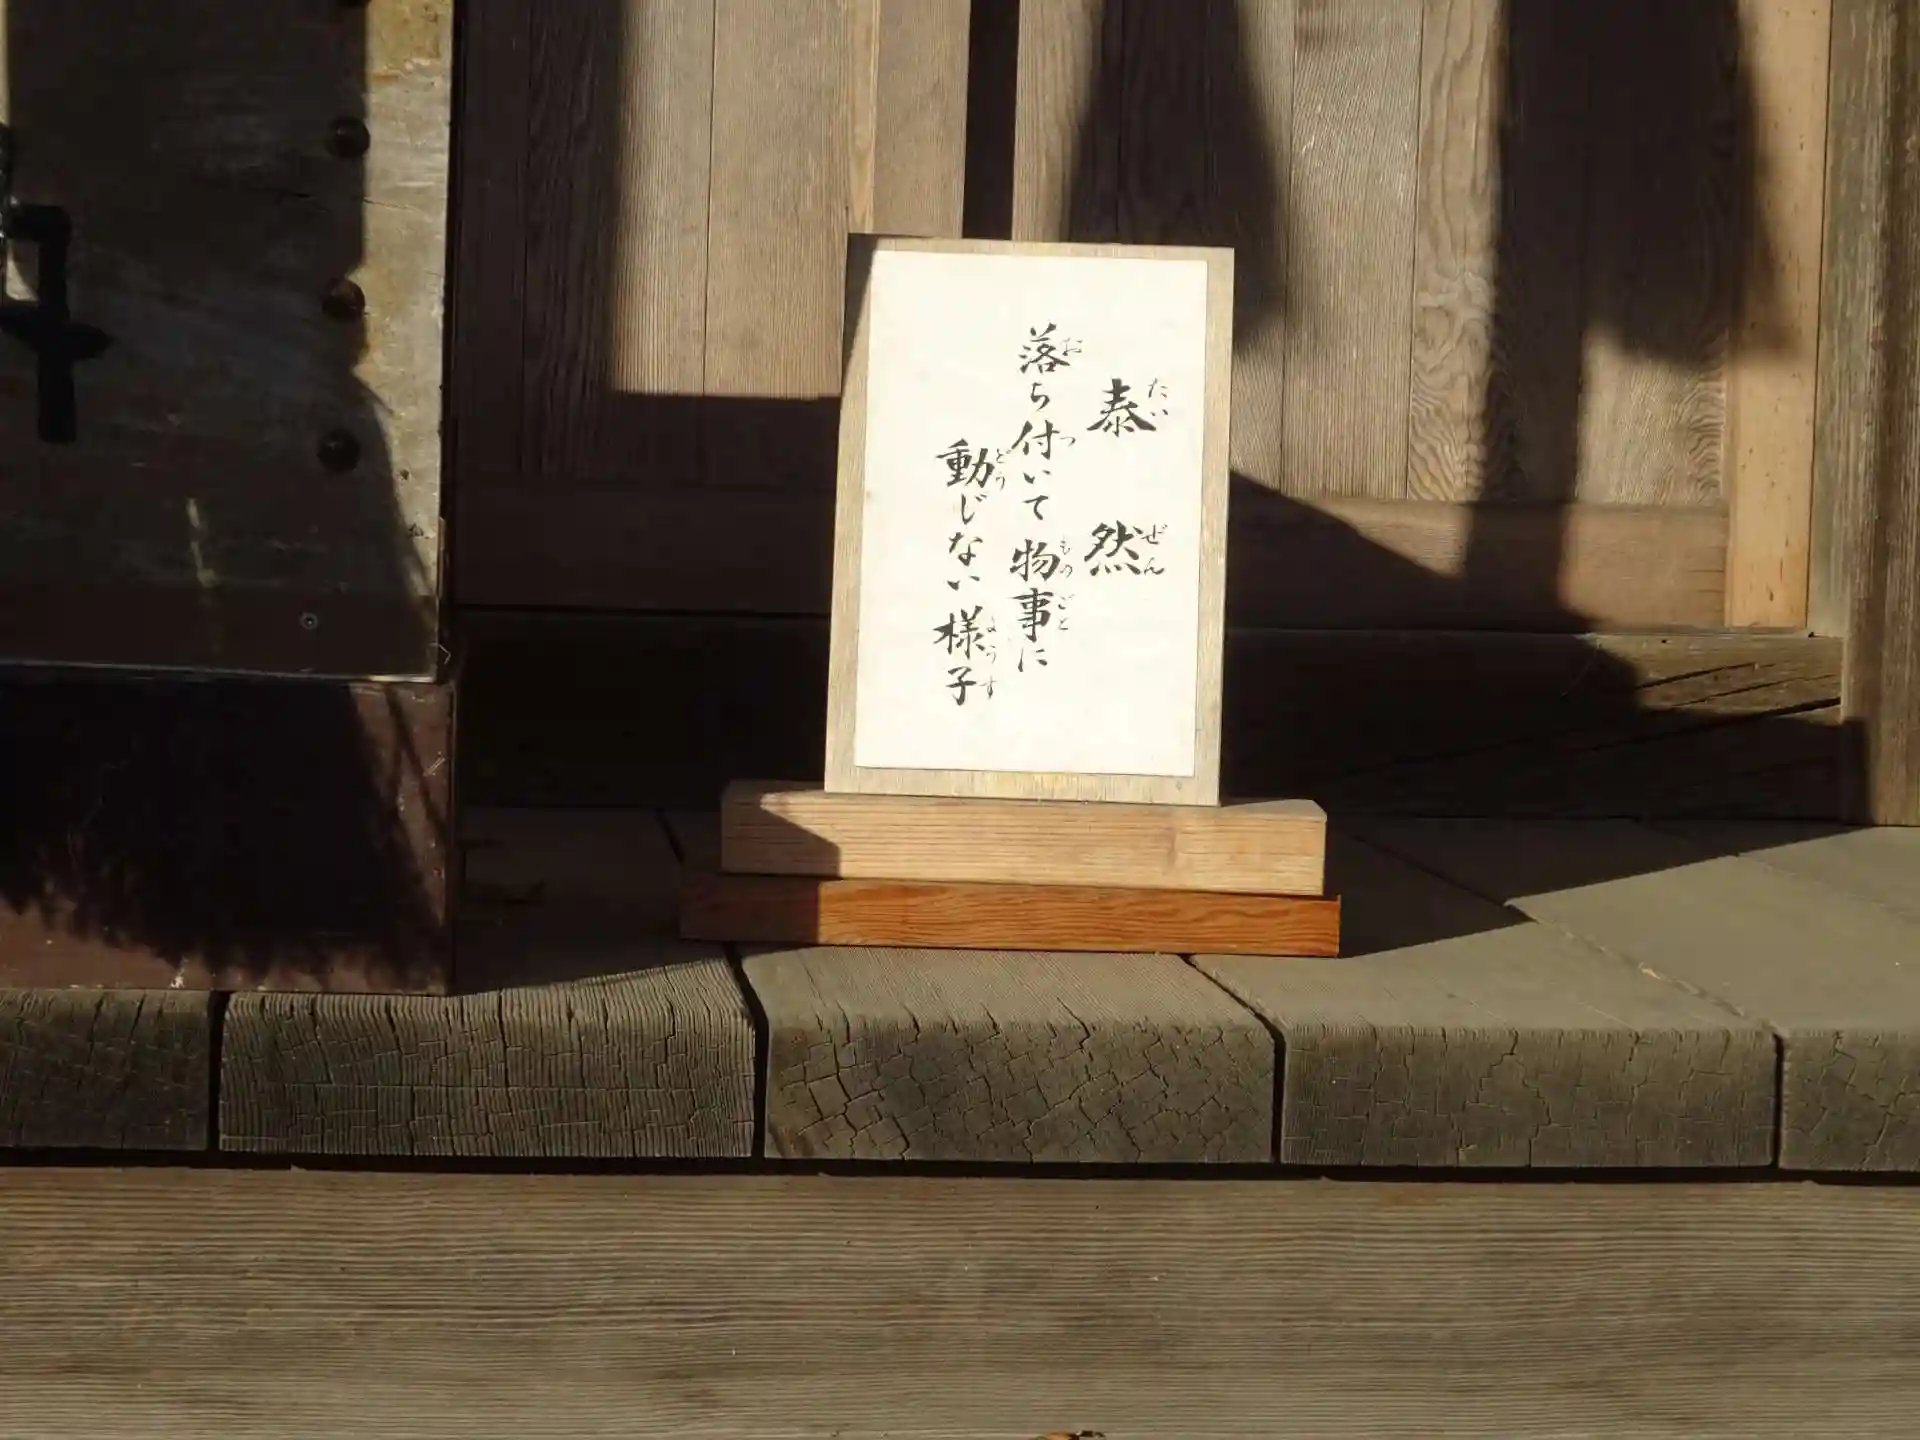 泰然
たいぜん
落ち付いて物事に
お つ ものごと
動じない様子
どう ようす